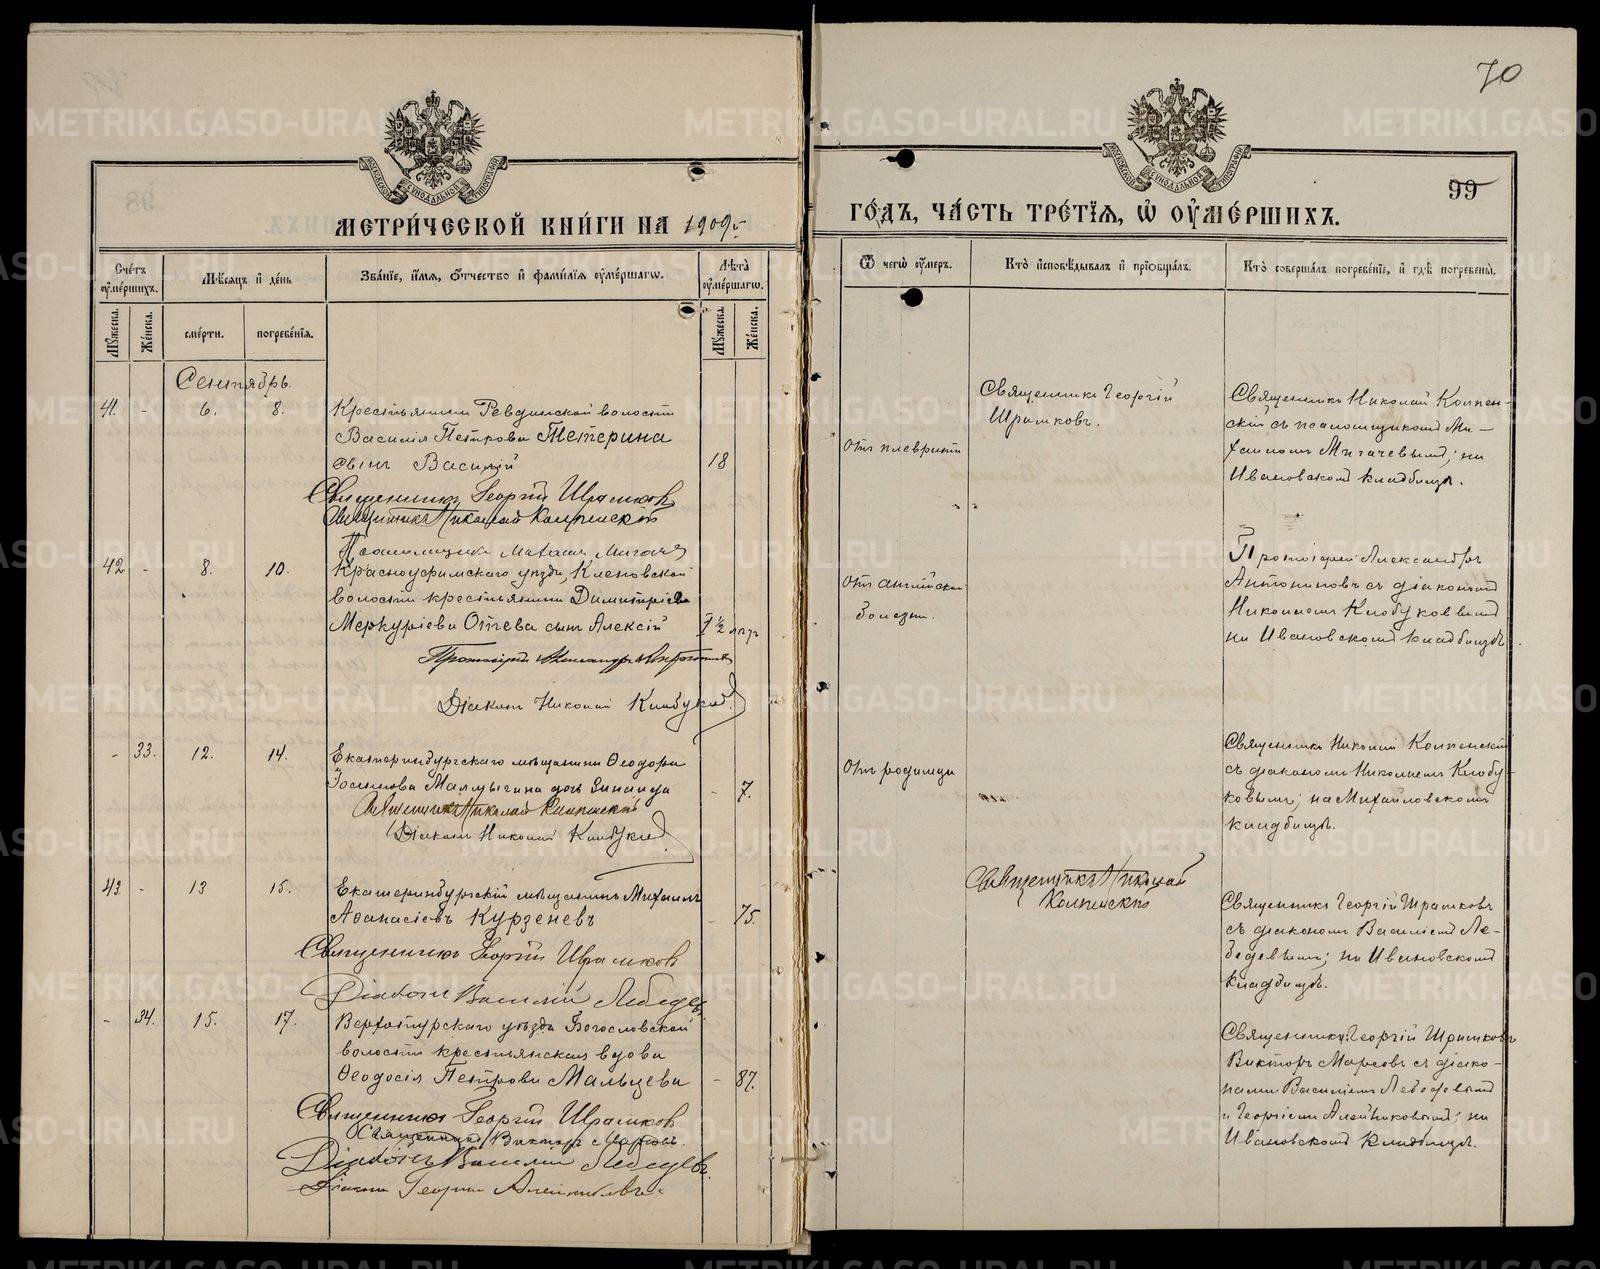 70
99
МЕТРИ́ЧЕСКОЙ КНИ́ГИ НА 1909 г.
ГО́ДЪ, ЧА́СТЬ ТРЕ́ТІѦ, Ѡ҆ ОУ҆МЕ́РШИХЪ.
Сче́тъ оу҆ме́ршихъ.
Мѣ́сяцъ и҆ де́нь
Зва́нїе, и҆́мѧ, ѻ҆́тчество и҆ фами́лїѧ оу҆ме́ршагѡ.
Лѣ́та оу҆ме́ршагѡ.
Ѿ чегѡ̀ оу҆́меръ.
Кто̀ и҆сповѣ́дывалъ и҆ прїѡбща́лъ.
Кто̀ соверша́лъ погребе́нїе, и҆ гдѣ̀ погребены̀.
Мꙋ́жеска.
Же́нска.
сме́рти.
погребе́нїѧ.
Мꙋ́жеска.
Же́нска.
Сентябрь.
41. - 6. 8.
Крестьянина Ревдинской волости
Василія Петрова Тетерина
сынъ Василій 18
Священникъ Георгій Шрамковъ
Священникъ Николай Колпенскій
Псаломщикъ Михаилъ Мигачевъ
отъ плеврита
Священникъ Георгій
Шрамковъ.
Священникъ Николай Колпен-
скій съ псаломщикомъ Ми-
хаиломъ Мигачевымъ; на
Ивановскомъ кладбищѣ.
42 - 8. 10.
Красноуфимскаго уѣзда, Кленовской
волости крестьянина Димитрія
Меркуріева Отева сынъ Алексій 1/2
Протоіерей Александръ Антониновъ
Діаконъ Николай Клобуковъ
отъ англійской
болезни.
Протоіерей Александръ
Антониновъ съ діакономъ
Николаемъ Клобуковымъ
на Ивановскомъ кладбищѣ.
- 33. 12. 14.
Екатеринбургскаго мѣщанина Ѳеодора
Іосифова Малмыгина дочь Зинаида - 7.
Священникъ Николай Колпенскій
Діаконъ Николай Клобуковъ
отъ родимца
Священникъ Николай Колпенскій
съ діакономъ Николаемъ Клобу-
ковымъ; на Михайловскомъ
кладбищѣ.
43. - 13 15.
Екатеринбургскій мѣщанинъ Михаилъ
Аѳанасіевъ Курзеневъ - 75.
Священникъ Георгій Шрамковъ
Діаконъ Василій Лебедевъ
Священникъ Николай
Колпенскій
Священникъ Георгій Шрамковъ
съ діакономъ Василіемъ Ле-
бедевымъ; на Ивановскомъ
кладбищѣ.
- 34. 15. 17.
Верхотурскаго уѣзда Богословской
волости крестьянская вдова
Ѳеодосія Петрова Мальцева - 87.
Священникъ Георгій Шрамковъ
Священникъ Викторъ Марсовъ.
Діаконъ Василій Лебедевъ.
Діаконъ Георгій Алейниковъ.
Священники: Георгій Шрамковъ
Викторъ Марсовъ съ діако-
нами Василіемъ Лебедевымъ
и Георгіемъ Алейниковымъ; на
Ивановскомъ кладбищѣ.
METRIKI.GASO-URAL.RU